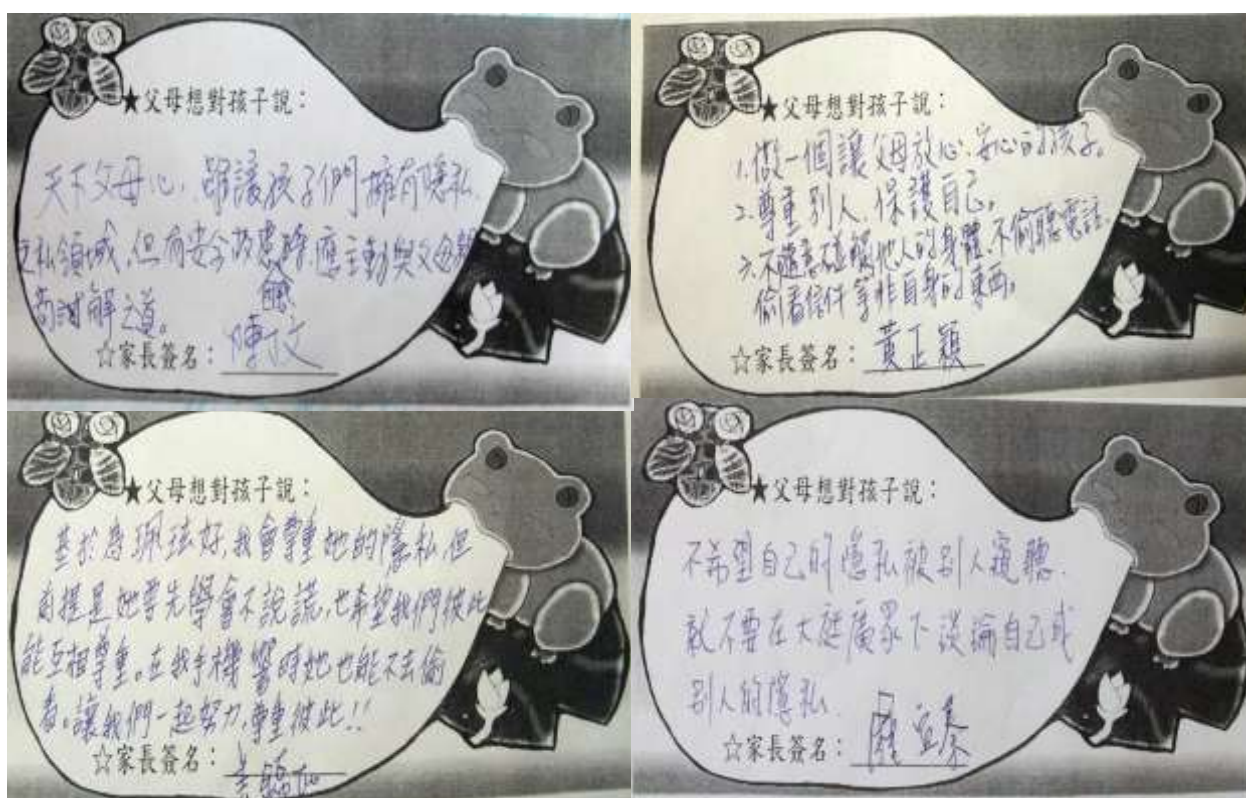 ★父母想對孩子說：
天下父母心，雖讓孩子們擁有隱私
之私領域，但有安全故慮時，應主動與父母親
商討解之道。
☆家長簽名：陳文
★父母想對孩子說：
1.做一個讓父母放心、安心的孩子。
2.尊重別人，保護自己。
3.不隨意碰觸他人的身體，不偷聽電話、
偷看信件等非自身的東西。
☆家長簽名：黃正穎
★父母想對孩子說：
基於為珮玹好，我會尊重她的隱私，但
前提是她要先學會不說謊，也希望我們彼此
能互相尊重。在我手機響時她也能不去偷
看。讓我們一起努力，尊重彼此!!
☆家長簽名：
★父母想對孩子說：
不希望自己的隱私被別人窺聽，
就不要在大庭廣眾下談論自己或
別人的隱私.
☆家長簽名：